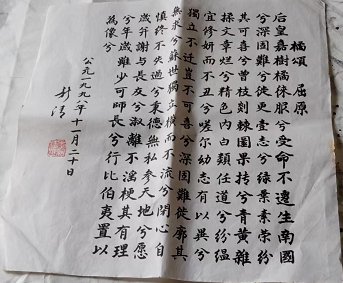 橘頌 屈原
后皇嘉樹橘徠服兮受命不遷生南國
兮深固難徙更壹志兮綠葉素榮紛
其可喜兮曾枝剡棘圜果摶兮青黃雜
揉文章爛兮精色内白類任道兮紛緼
宜修姱而不丑兮嗟尔幼志有以異兮
獨立不遷豈不可喜兮深固難徙廓其
無求兮蘇世獨立橫而不流兮閉心自
慎終不失過兮秉德無私參天地兮願
歲并謝與長友兮淑離不淫梗其有理
兮年歲雖少可師長兮行比伯夷置以
為像兮
公元一九九八年十一月二十日